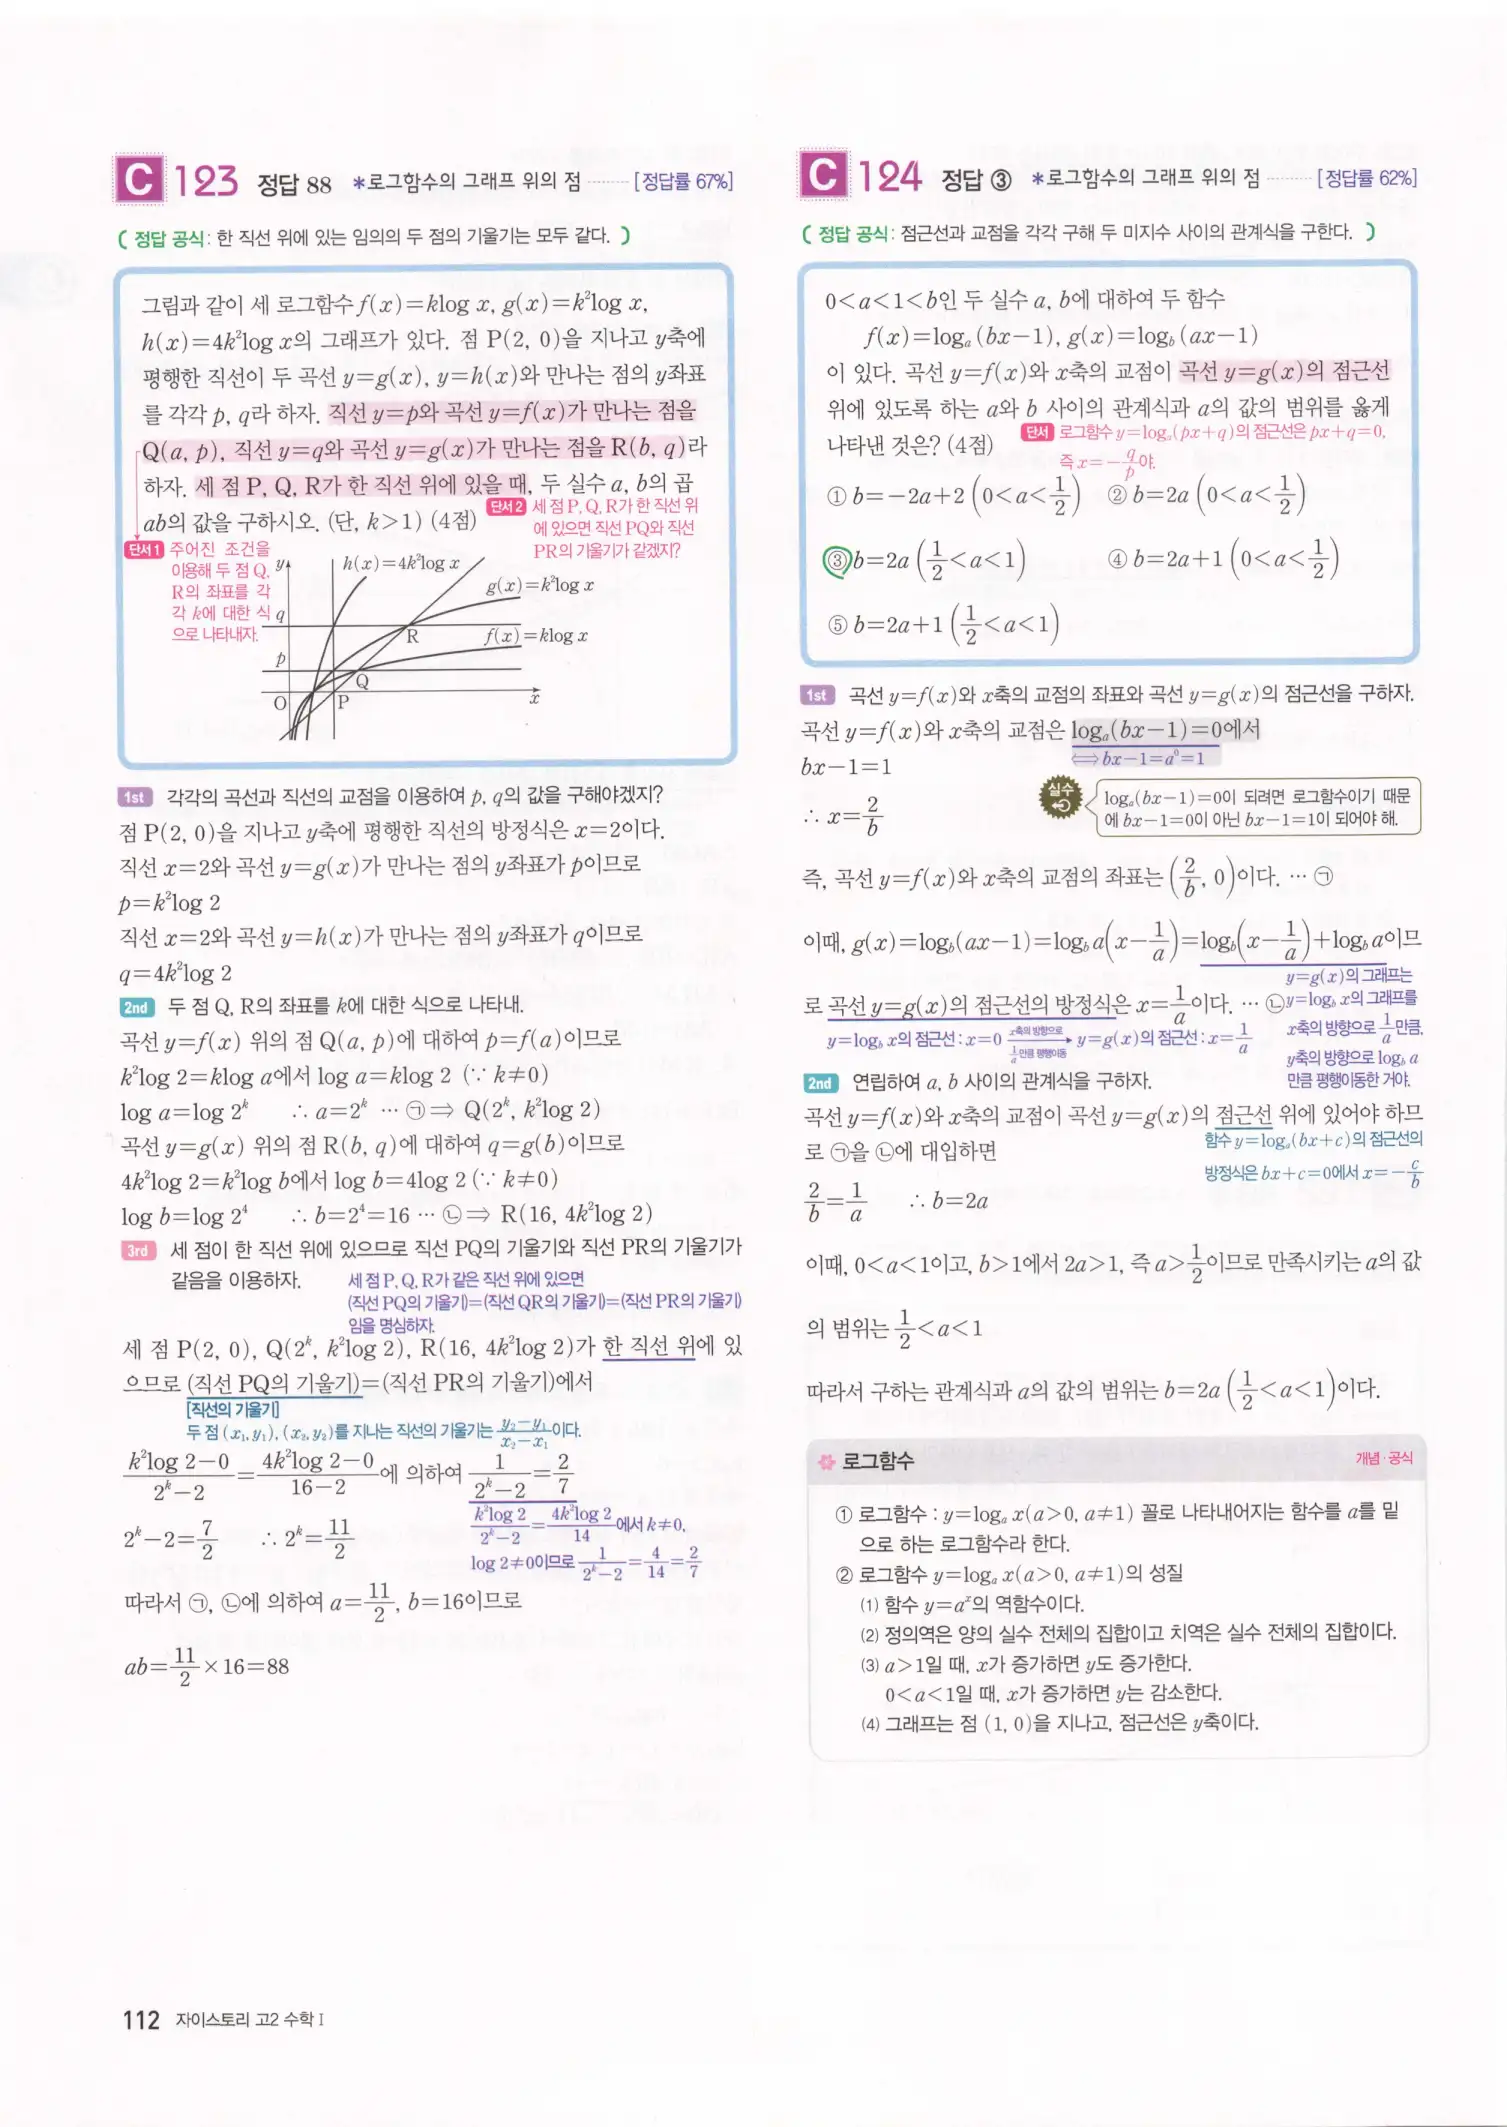 C 123 정답 88 *로그함수의 그래프 위의 점 ········ [정답률 67%]
( 정답 공식: 한 직선 위에 있는 임의의 두 점의 기울기는 모두 같다. )
그림과 같이 세 로그함수 f(x)=klog x, g(x)=k²log x,
h(x)=4k²log x의 그래프가 있다. 점 P(2, 0)을 지나고 y축에
평행한 직선이 두 곡선 y=g(x), y=h(x)와 만나는 점의 y좌표
를 각각 p, q라 하자. 직선 y=p와 곡선 y=f(x)가 만나는 점을
Q(a, p), 직선 y=q와 곡선 y=g(x)가 만나는 점을 R(b, q)라
하자. 세 점 P, Q, R가 한 직선 위에 있을 때, 두 실수 a, b의 곱
ab의 값을 구하시오. (단, k>1) (4점)
단서2 세 점 P, Q, R가 한 직선 위
에 있으면 직선 PQ와 직선
PR의 기울기가 같겠지?
단서1 주어진 조건을
이용해 두 점 Q,
R의 좌표를 각
각 k에 대한 식
으로 나타내자.
y
h(x)=4k²log x
g(x)=k²log x
q
R
f(x)=klog x
p
Q
O
P
x
1st 각각의 곡선과 직선의 교점을 이용하여 p, q의 값을 구해야겠지?
점 P(2, 0)을 지나고 y축에 평행한 직선의 방정식은 x=2이다.
직선 x=2와 곡선 y=g(x)가 만나는 점의 y좌표가 p이므로
p=k²log 2
직선 x=2와 곡선 y=h(x)가 만나는 점의 y좌표가 q이므로
q=4k²log 2
2nd 두 점 Q, R의 좌표를 k에 대한 식으로 나타내.
곡선 y=f(x) 위의 점 Q(a, p)에 대하여 p=f(a)이므로
k²log 2=klog a에서 log a=klog 2 (∵ k≠0)
log a=log 2ᵏ ∴ a=2ᵏ ··· ㉠ ⇒ Q(2ᵏ, k²log 2)
곡선 y=g(x) 위의 점 R(b, q)에 대하여 q=g(b)이므로
4k²log 2=k²log b에서 log b=4log 2 (∵ k≠0)
log b=log 2⁴ ∴ b=2⁴=16 ··· ㉡ ⇒ R(16, 4k²log 2)
3rd 세 점이 한 직선 위에 있으므로 직선 PQ의 기울기와 직선 PR의 기울기가
같음을 이용하자.
세 점 P, Q, R가 같은 직선 위에 있으면
(직선 PQ의 기울기)=(직선 QR의 기울기)=(직선 PR의 기울기)
임을 명심하자.
세 점 P(2, 0), Q(2ᵏ, k²log 2), R(16, 4k²log 2)가 한 직선 위에 있
으므로 (직선 PQ의 기울기)=(직선 PR의 기울기)에서
[직선의 기울기]
두 점 (x₁, y₁), (x₂, y₂)를 지나는 직선의 기울기는 (y₂-y₁)/(x₂-x₁)이다.
(k²log 2-0)/(2ᵏ-2)=(4k²log 2-0)/(16-2)에 의하여 1/(2ᵏ-2)=2/7
k²log 2/(2ᵏ-2)=4k²log 2/14에서 k≠0,
log 2≠0이므로 1/(2ᵏ-2)=4/14=2/7
2ᵏ-2=7/2 ∴ 2ᵏ=11/2
따라서 ㉠, ㉡에 의하여 a=11/2, b=16이므로
ab=11/2×16=88
C 124 정답 ③ *로그함수의 그래프 위의 점 ········ [정답률 62%]
( 정답 공식: 점근선과 교점을 각각 구해 두 미지수 사이의 관계식을 구한다. )
0<a<1<b인 두 실수 a, b에 대하여 두 함수
f(x)=logₐ(bx-1), g(x)=log_b(ax-1)
이 있다. 곡선 y=f(x)와 x축의 교점이 곡선 y=g(x)의 점근선
위에 있도록 하는 a와 b 사이의 관계식과 a의 값의 범위를 옳게
나타낸 것은? (4점)
단서 로그함수 y=logₐ(px+q)의 점근선은 px+q=0,
즉 x=-q/p야.
① b=-2a+2 (0<a<1/2) ② b=2a (0<a<1/2)
③ b=2a (1/2<a<1) ④ b=2a+1 (0<a<1/2)
⑤ b=2a+1 (1/2<a<1)
1st 곡선 y=f(x)와 x축의 교점의 좌표와 곡선 y=g(x)의 점근선을 구하자.
곡선 y=f(x)와 x축의 교점은 logₐ(bx-1)=0에서
⟺ bx-1=a⁰=1
bx-1=1
∴ x=2/b
실수
logₐ(bx-1)=0이 되려면 로그함수이기 때문
에 bx-1=0이 아닌 bx-1=1이 되어야 해.
즉, 곡선 y=f(x)와 x축의 교점의 좌표는 (2/b, 0)이다. ··· ㉠
이때, g(x)=log_b(ax-1)=log_b a(x-1/a)=log_b(x-1/a)+log_b a이므
로 곡선 y=g(x)의 점근선의 방정식은 x=1/a이다. ··· ㉡
y=g(x)의 그래프는
y=log_b x의 그래프를
x축의 방향으로 1/a만큼,
y축의 방향으로 log_b a
만큼 평행이동한 거야.
y=log_b x의 점근선 : x=0 x축의 방향으로 1/a만큼 평행이동 → y=g(x)의 점근선 : x=1/a
2nd 연립하여 a, b 사이의 관계식을 구하자.
곡선 y=f(x)와 x축의 교점이 곡선 y=g(x)의 점근선 위에 있어야 하므
로 ㉠을 ㉡에 대입하면
함수 y=logₐ(bx+c)의 점근선의
방정식은 bx+c=0에서 x=-c/b
2/b=1/a ∴ b=2a
이때, 0<a<1이고, b>1에서 2a>1, 즉 a>1/2이므로 만족시키는 a의 값
의 범위는 1/2<a<1
따라서 구하는 관계식과 a의 값의 범위는 b=2a (1/2<a<1)이다.
로그함수 개념·공식
① 로그함수 : y=logₐ x(a>0, a≠1) 꼴로 나타내어지는 함수를 a를 밑
으로 하는 로그함수라 한다.
② 로그함수 y=logₐ x(a>0, a≠1)의 성질
(1) 함수 y=aˣ의 역함수이다.
(2) 정의역은 양의 실수 전체의 집합이고 치역은 실수 전체의 집합이다.
(3) a>1일 때, x가 증가하면 y도 증가한다.
0<a<1일 때, x가 증가하면 y는 감소한다.
(4) 그래프는 점 (1, 0)을 지나고, 점근선은 y축이다.
112 자이스토리 고2 수학 I